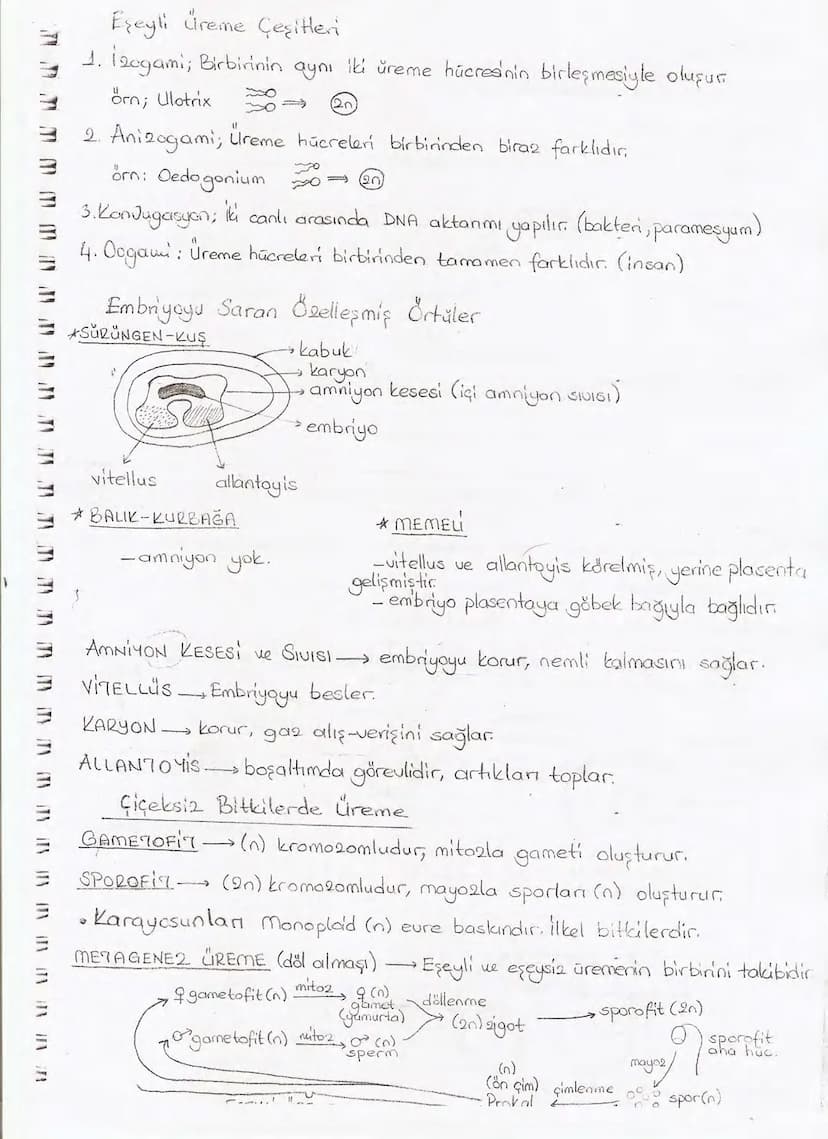 Eşeyli Üreme Çeşitleri
1. İzogami; Birbirinin aynı iki üreme hücresinin birleşmesiyle oluşur.
örn; Ulotrix 2n
2. Anizogami; Üreme hücreleri birbirinden biraz farklıdır.
örn: Oedogonium 2n
3. Konjugasyon; İki canlı arasında DNA aktarımı yapılır. (bakteri, paramesyum)
4. Oogami: Üreme hücreleri birbirinden tamamen farklıdır. (insan)
Embriyoyu Saran Özelleşmiş Örtüler
*SÜRÜNGEN-KUŞ
kabuk
karyon
amniyon kesesi (içi amniyon sıvısı)
embriyo
vitellus allantoyis
* BALIK-KURBAĞA
-amniyon yok.
* MEMELİ
-vitellus ve allantoyis körelmiş, yerine plasenta
gelişmiştir.
- embriyo plasentaya göbek bağıyla bağlıdır.
AMNİYON KESESİ ve SIVISI → embriyoyu korur, nemli kalmasını sağlar.
VİTELLÜS → Embriyoyu besler.
KARYON → korur, gaz alış-verişini sağlar.
ALLANTOYİS → boşaltımda görevlidir, artıkları toplar.
Çiçeksiz Bitkilerde Üreme
GAMETOFİT → (n) kromozomludur, mitozla gameti oluşturur.
SPOROFİT → (2n) kromozomludur, mayozla sporları (n) oluşturur.
• Karayosunları Monoploid (n) evre baskındır. İlkel bitkilerdir.
METAGENEZ ÜREME (döl almaşı) → Eşeyli ve eşeysiz üremenin birbirini takibidir
♀ gametofit (n) mitoz → ♀ (n)
gamet
(yumurta)
döllenme
(2n) zigot → sporofit (2n)
♂ gametofit (n) mitoz → ♂ (n)
sperm
sporofit
ana hüc.
mayoz
spor (n)
çimlenme
(n)
(ön çim)
Protal